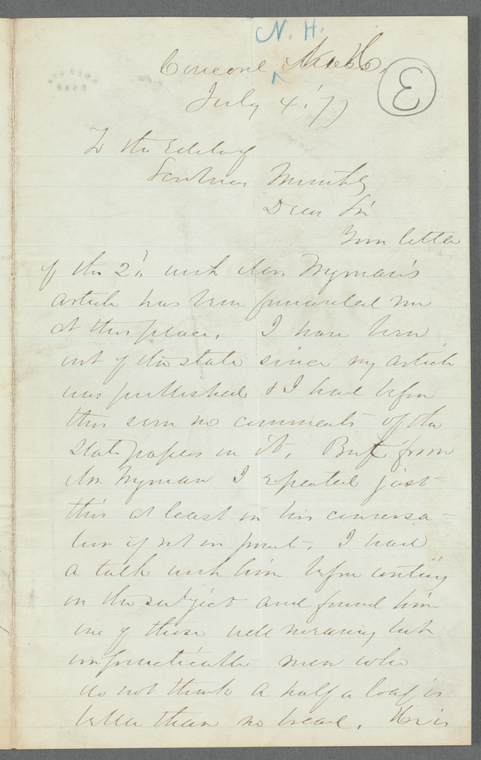 N. H.
Concord
3
July 4. '77
To the Editor of
Scribners Monthly
Dear Sir
Your letter
of the 2'' with Mr. Wyman's
article has been forwarded me
at this place. I have been
out of the state since my article
was published & I had before
this seen no comments of the
State papers on it. But from
Mr. Wyman I expected just
this at least in his conversa-
tion if not in print. I had
a talk with him before writing
on the subject and found him
one of those well meaning but
impracticable men who
do not think a half a loaf is
better than no bread. He is